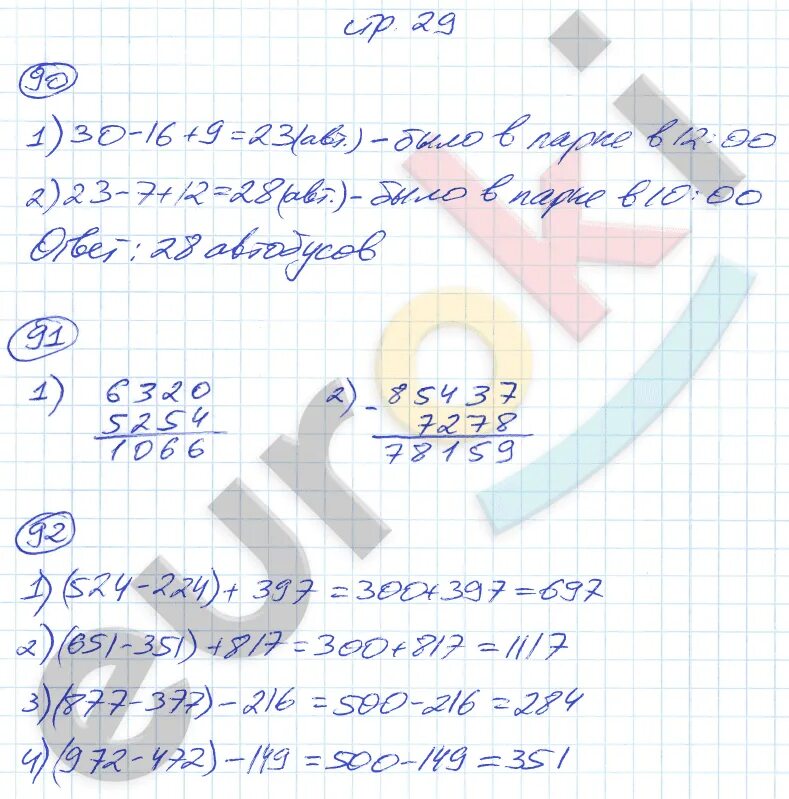 стр. 29
90
1) 30-16+9=23(авт.) - было в парке в 12:00
2) 23-7+12=28(авт.) - было в парке в 10:00
Ответ: 28 автобусов
91
1) 6320
5254
1066
2) - 85437
7278
78159
92
1) (524-224)+397=300+397=697
2) (651-351)+817=300+817=1117
3) (877-377)-216=500-216=284
4) (972-472)-149=500-149=351
euroki